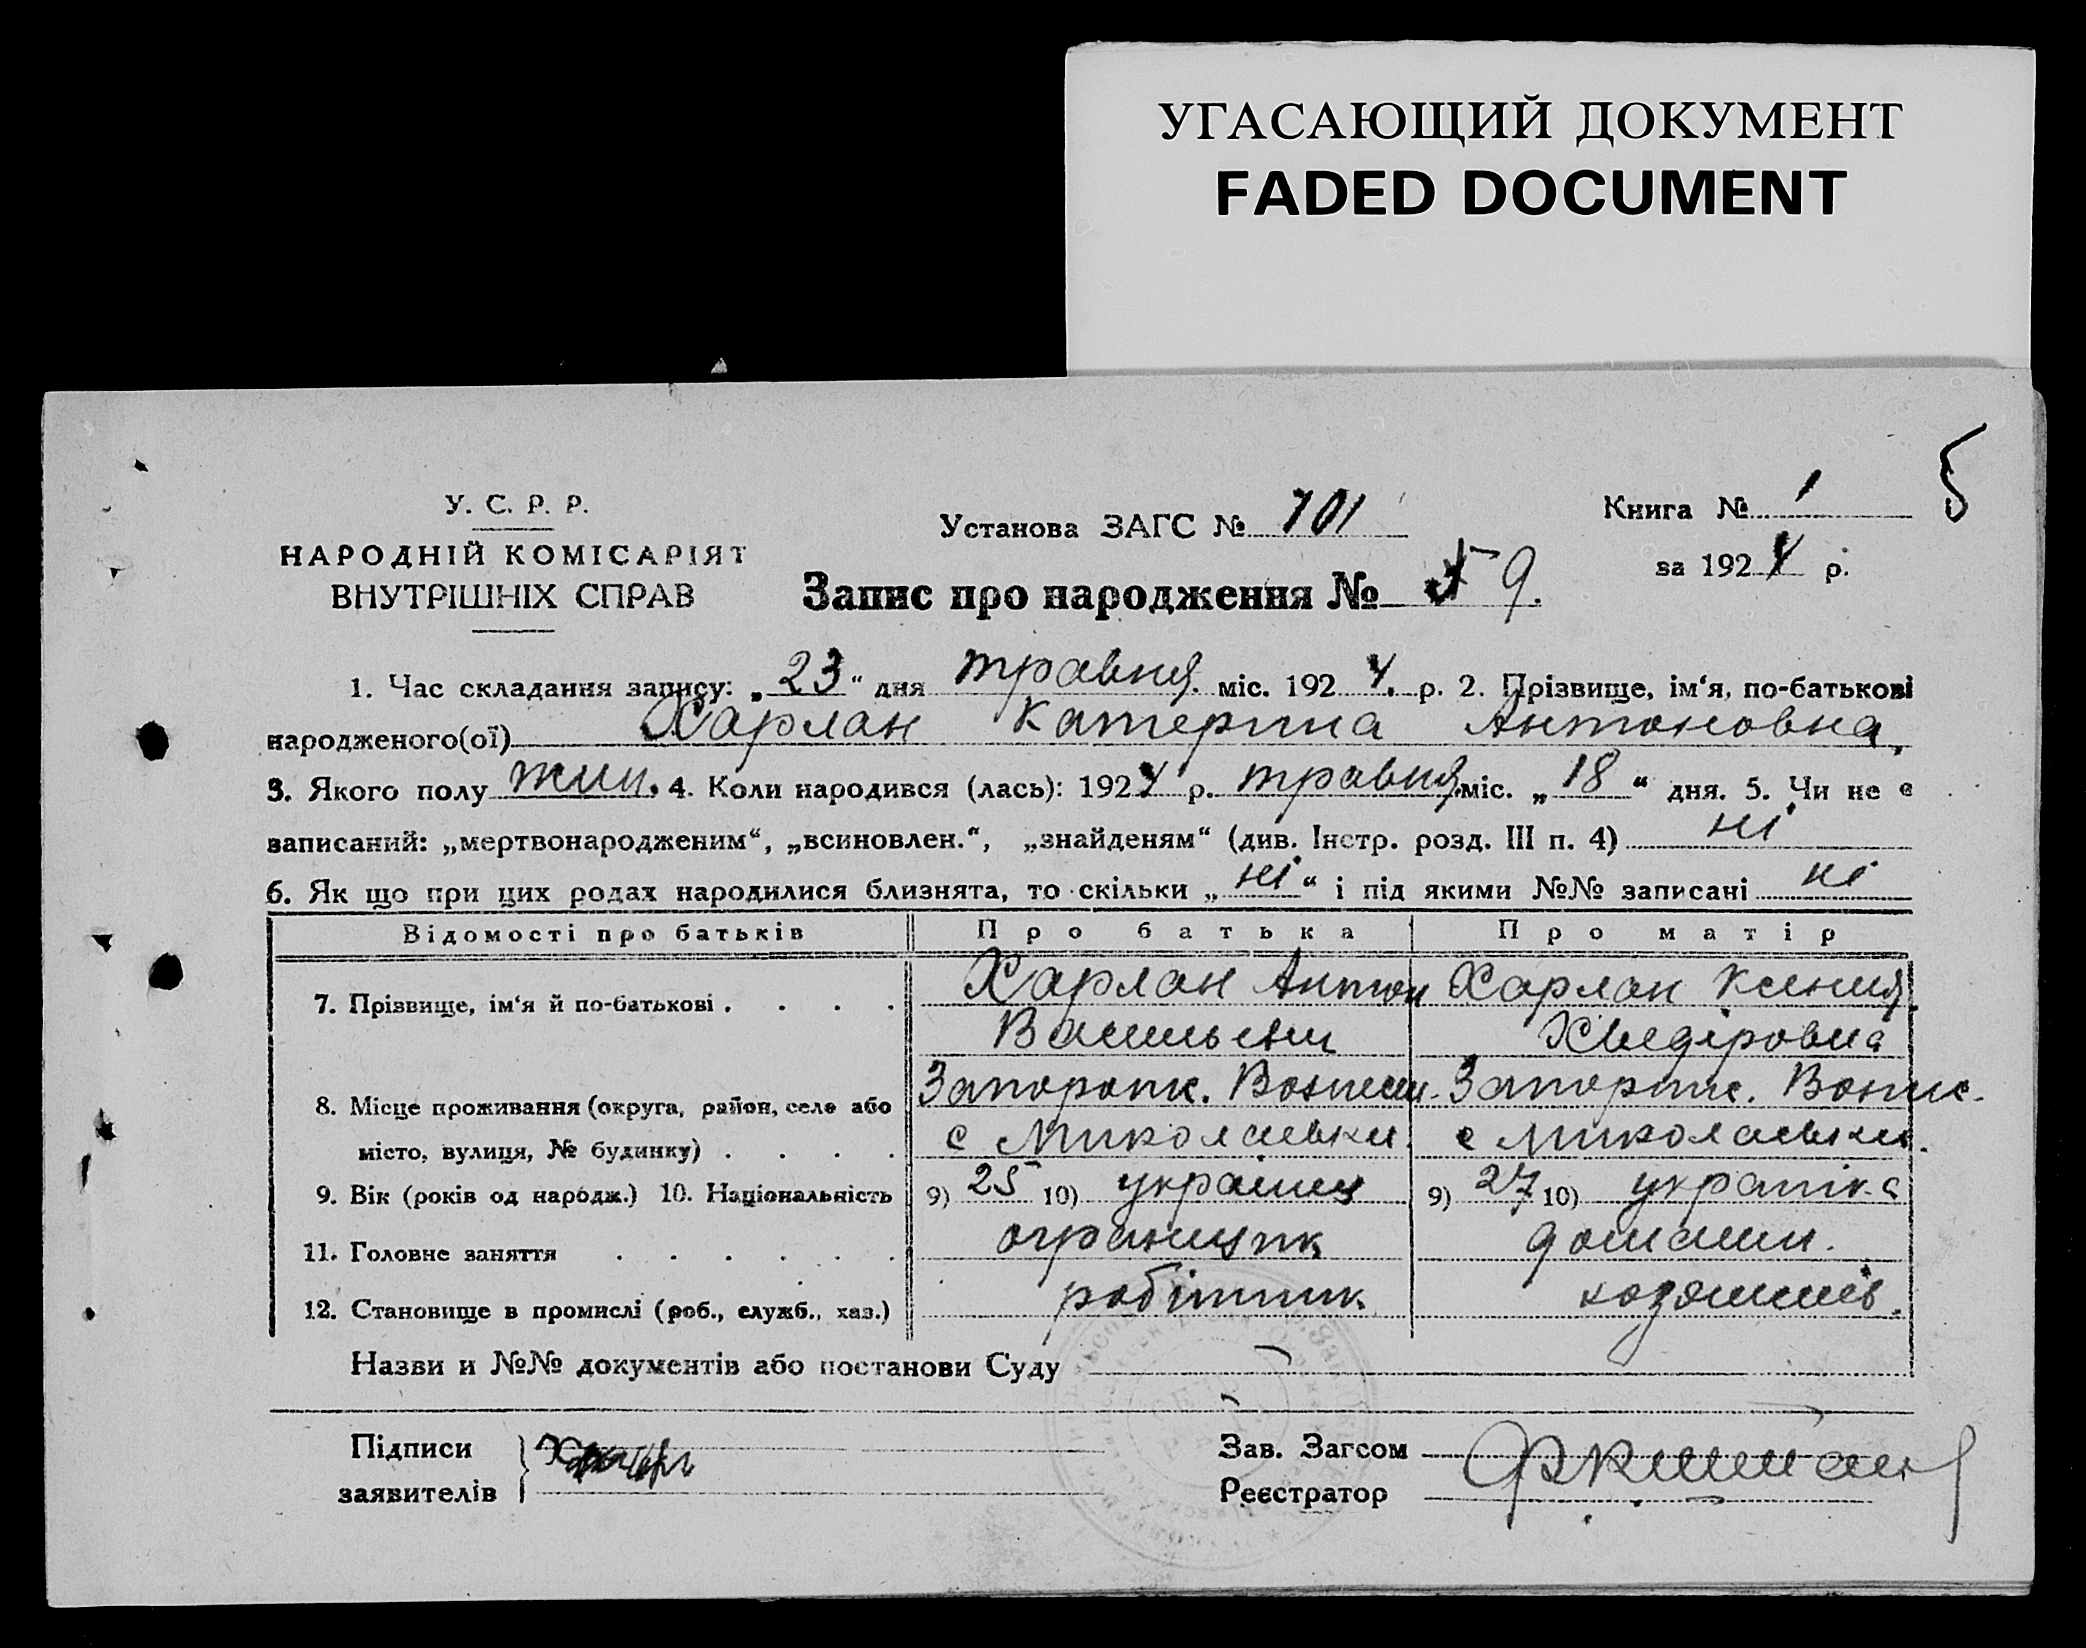 УГАСАЮЩИЙ ДОКУМЕНТ
FADED DOCUMENT
5
У. С. Р. Р.
НАРОДНІЙ КОМІСАРІЯТ
ВНУТРІШНІХ СПРАВ
Установа ЗАГС № 101
Книга № 1
за 1924 р.
Запис про народження № 59.
1. Час складання запису: „23“ дня травня міс. 1924. р. 2. Прізвище, ім‘я, по-батькові
народженого(ої) Харлан Катерина Антоновна,
3. Якого полу жин. 4. Коли народився (лась): 1924 р. травня міс. „18“ дня. 5. Чи не є
записаний: „мертвонародженим“, „всиновлен.“, „знайденям“ (див. Інстр. розд. III п. 4) ні
6. Як що при цих родах народилися близнята, то скільки „ні“ і під якими №№ записані ні
Відомості про батьків Про батька Про матір
7. Прізвище, ім‘я й по-батькові . . . . Харлан Антон Харлан Ксения
Васильевич Хведіровна
8. Місце проживання (округа, район, село або Запорожс. Вознесен. Запорожс. Вознес.
місто, вулиця, № будинку) . . . . с Миколаевки. с Миколаевки.
9. Вік (років од народж.) 10. Національність 9) 25 10) українец 9) 27 10) українка
11. Головне заняття . . . . . . домашн.
12. Становище в промислі (роб., служб., хаз.) робітник хозяшнів.
Назви и №№ документів або постанови Суду —
Підписи
заявителів
Зав. Загсом
Реєстратор